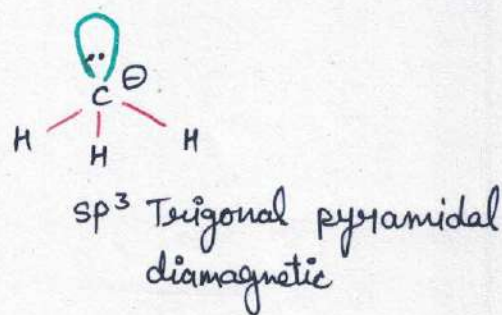 C ⊖
H H H
sp³ Trigonal pyramidal
diamagnetic